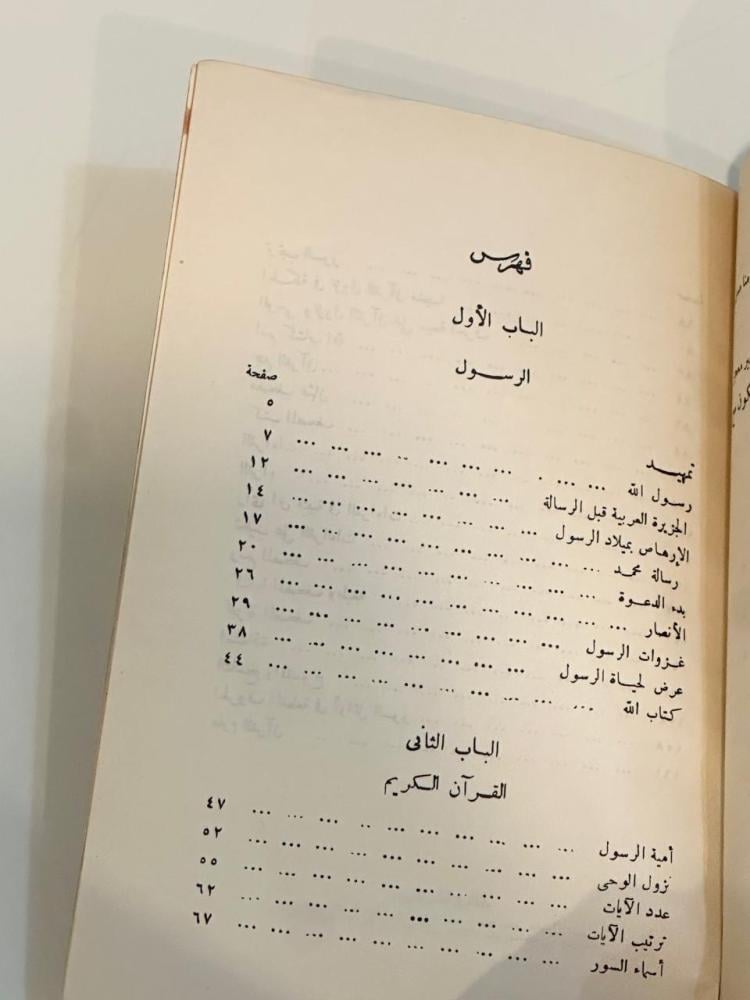 فهرس
الباب الأول
الرســول
صفحة
تمهيــد ... ... ... ... ... ... ... ... ٥
رسول الله ... ... ... ... ... ... ... ... ٧
الجزيرة العربية قبل الرسالة ... ... ... ... ... ... ١٢
الإرهاص بميلاد الرسول ... ... ... ... ... ... ١٤
رسالة محمد ... ... ... ... ... ... ... ... ١٧
بدء الدعوة ... ... ... ... ... ... ... ... ٢٠
الأنصار ... ... ... ... ... ... ... ... ٢٦
غزوات الرسول ... ... ... ... ... ... ... ... ٢٩
عرض لحياة الرسول ... ... ... ... ... ... ... ٣٨
كتاب الله ... ... ... ... ... ... ... ... ٤٤
الباب الثانى
القرآن الكريم
أمية الرسول ... ... ... ... ... ... ... ... ٤٧
نزول الوحى ... ... ... ... ... ... ... ... ٥٢
عدد الآيات ... ... ... ... ... ... ... ... ٥٥
ترتيب الآيات ... ... ... ... ... ... ... ... ٦٢
أسماء السور ... ... ... ... ... ... ... ... ٦٧